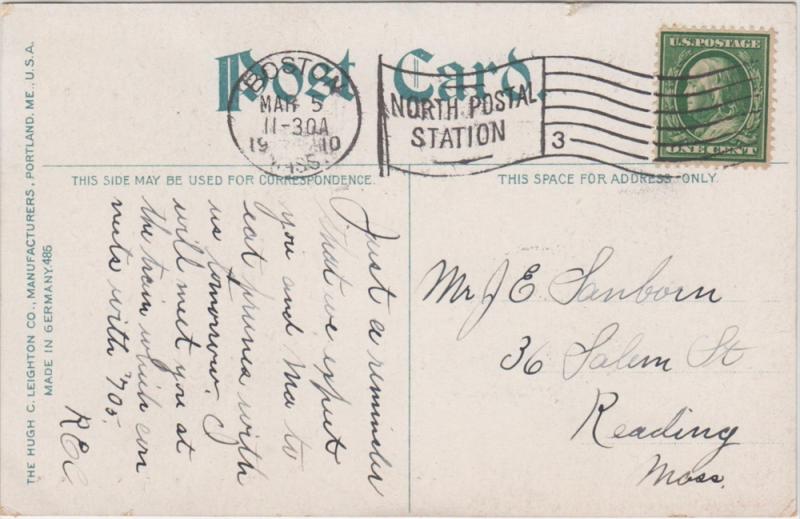 Post Card.
BOSTON
MAR 5
11-30A
19 10
MASS.
NORTH POSTAL
STATION
3
U.S. POSTAGE
ONE CENT
THIS SIDE MAY BE USED FOR CORRESPONDENCE.
THIS SPACE FOR ADDRESS ONLY.
THE HUGH C. LEIGHTON CO., MANUFACTURERS, PORTLAND, ME., U.S.A.
MADE IN GERMANY. 485
Just a reminder
that we expect
you and Ma to
eat prunes with
us tomorrow. I
will meet you at
the train which con
nects with 705.
R.E.C.
Mr J E Sanborn
36 Salem St
Reading
Mass.